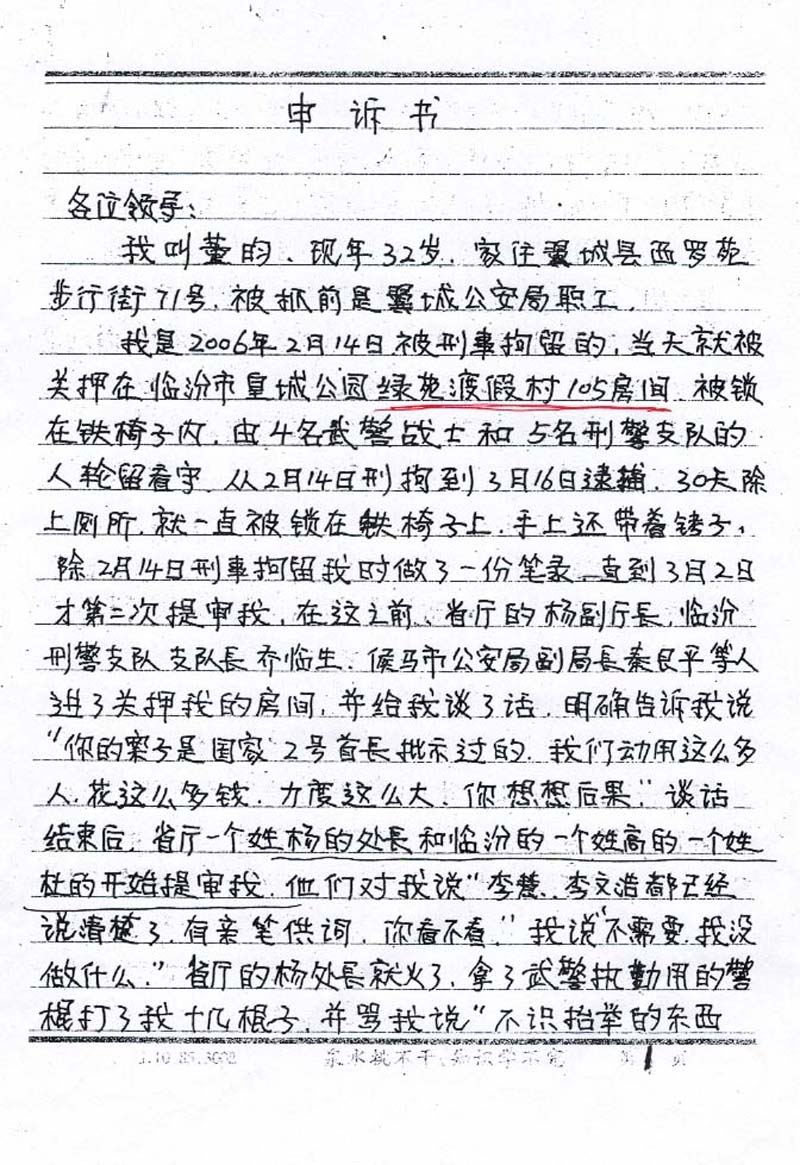 申诉书
各位领导：
我叫董昀、现年32岁、家住翼城县西罗苑
步行街71号，被抓前是翼城公安局职工．
我是2006年2月14日被刑事拘留的，当天就被
关押在临汾市皇城公园绿苑渡假村105房间．被锁
在铁椅子内，由4名武警战士和5名刑警支队的
人轮留看守．从2月14日刑拘到3月16日逮捕．30天除
上厕所．就一直被锁在铁椅子上．手上还带着铐子，
除2月14日刑事拘留我时做了一份笔录．直到3月2日
才第二次提审我，在这之前、省厅的杨副厅长，临汾
刑警支队支队长乔临生．侯马市公安局副局长秦良平等人
进了关押我的房间，并给我谈了话，明确告诉我说
“你的案子是国家2号首长批示过的．我们动用这么多
人．花这么多钱．力度这么大．你想想后果．”谈话
结束后．省厅一个姓杨的处长和临汾的一个姓高的一个姓
杜的开始提审我．他们对我说“李慧．李文浩都已经
说清楚了．有亲笔供词．你看不看．”我说“不需要．我没
做什么．”省厅的杨处长就火了．拿了武警执勤用的警
棍打了我十几棍子．并骂我说“不识抬举的东西
泉水挑不干、知识学不完 第1页